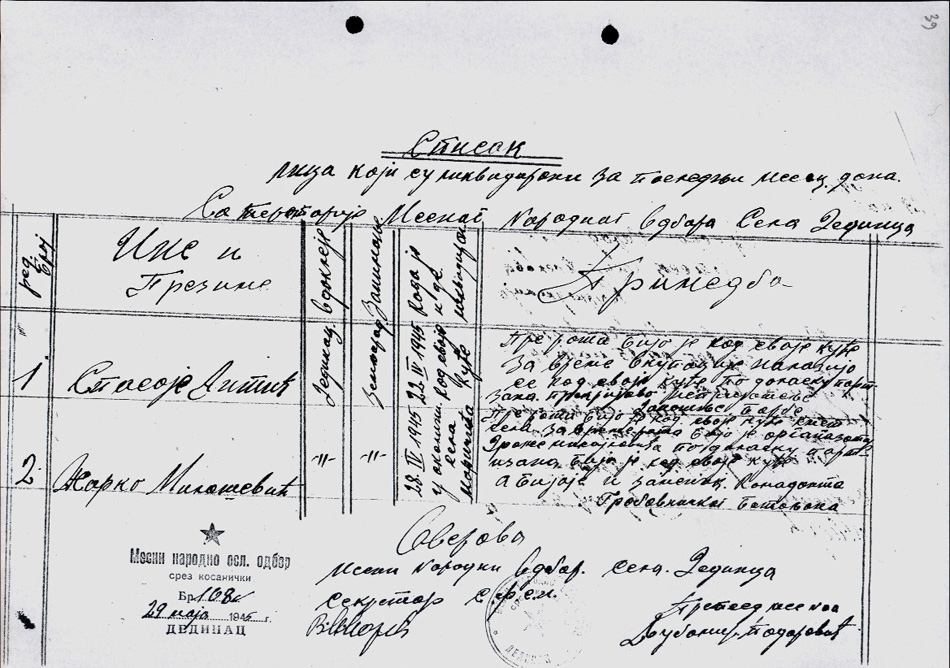 39
Списак
лица који су ликвидирани за последњи месец дана.
Са територије Месног Народног Одбора Села Дединца
ред. број
Име и
Презиме
Дединац
Занимање
Кода је
и где
ликвидиран
Примедба
1
Стасоје Антић
Земљорад
22. IV 1945
код своје
куће
Пре рата био је код своје куће
за време окупације налазио
се код своје куће по доласку парт
зана
2
Жарко Милошевић
-„-
-„-
28. IV 1945
у околини
села
Пре рата био је код своје куће
села за време рата био је организатор
Драже Михајловића по доласку парт-
изана био је код своје куће
а био је и заменик Команданта
Гребовничког батољона
Оверова
Месни народни Одбор. Села. Дединца
Секретар с.ф.с.н.
Претседник
Љубомир Тодоровић
Месни народно осл. одбор
срез косанички
Бр. 168
29 маја 1945 г.
ДЕДИНАЦ